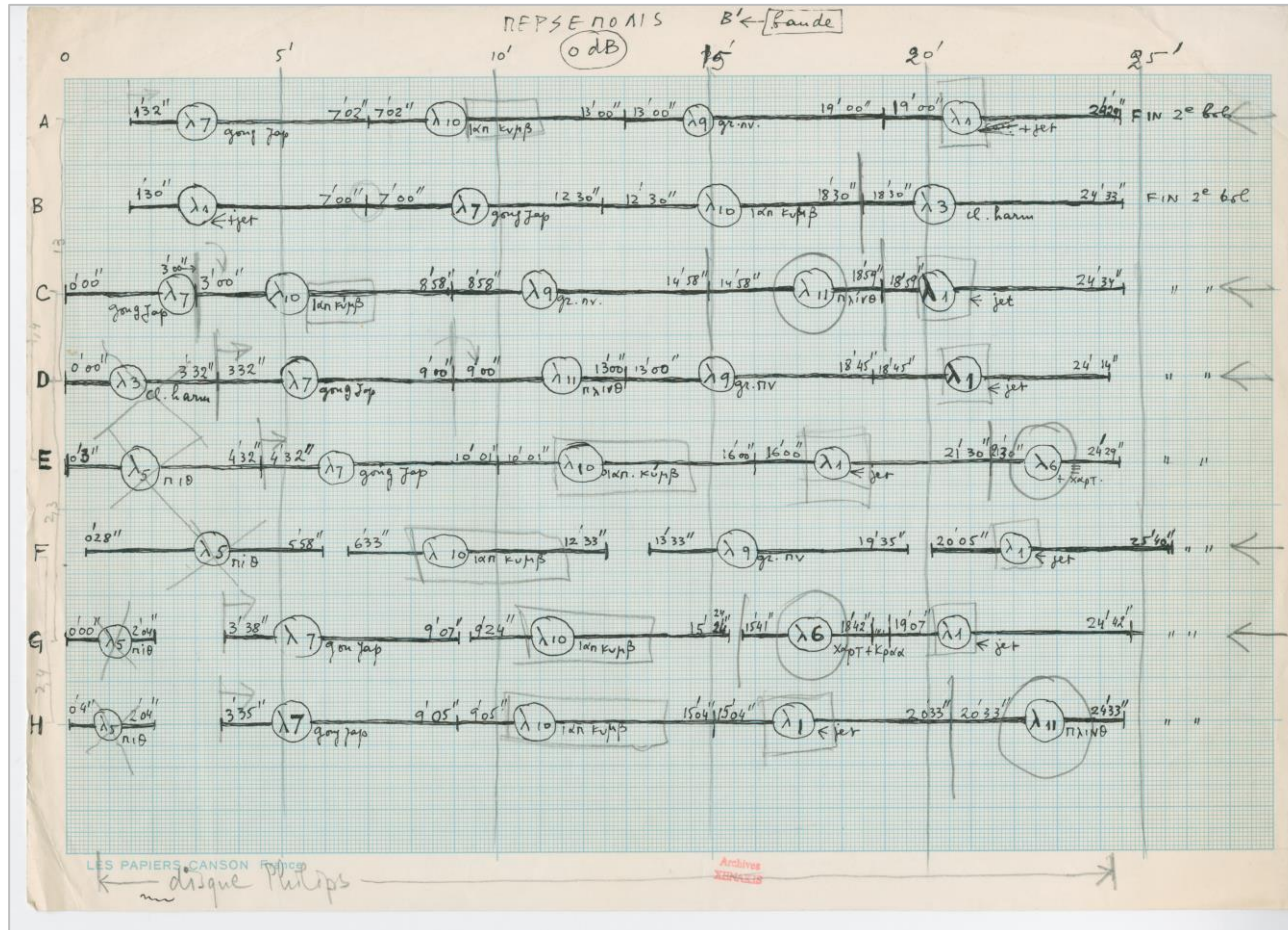 ΠΕΡΣΕΠΟΛΙΣ B' ← bande
0 dB
0 5' 10' 15' 20' 25'
A 1'32" λ7 gong Jap 7'02" 7'02" λ10 ιαπ κυμβ 13'00" 13'00" λ9 gr. πν. 19'00" 19'00" λ1 ← + jet 24'29" FIN 2e bob
B 1'30" λ1 ← + jet 7'00" 7'00" λ7 gong Jap 12'30" 12'30" λ10 ιαπ κυμβ 18'30 18'30" λ3 cl. harm 24'33" FIN 2e bob
C 0'00" λ7 gong Jap 3'00" 3'00" λ10 ιαπ κύμβ 8'58" 8'58 λ9 gr. πν. 14'58" 14'58" λ11 πλίνθ 18'59" 18'59" λ1 ← jet 24'34" " "
D 0'00" λ3 cl. harm 3'32" 3'32" λ7 gong Jap 9'00" 9'00" λ11 πλινθ 13'00" 13'00 λ9 gr πν 18'45" 18'45" λ1 ← jet 24'14" " "
E λ5 πιθ 4'32" 4'32" λ7 gong Jap 10'01" 10'01" λ10 ιαπ. κύμβ 16'00" 16'00" λ1 ← jet 21'30" λ6 + χαρτ. 24'29" " "
F 0'28" λ5 πιθ 5'58" 6'33" λ10 ιαπ κυμβ 12'33" 13'33" λ9 gr. πν 19'35" 20'05" λ1 ← jet 25'40" " "
G 0'00" λ5 πιθ 2'04" 3'38" λ7 gon Jap 9'07" 9'24" λ10 ιαπ κυμβ 15'24" 15'41" λ6 χαρτ + 18'42" 19'07" λ1 ← jet 24'42" " "
H 0'4" λ5 πιθ 2'04" 3'35" λ7 gong Jap 9'05" 9'05" λ10 ιαπ κυμβ 15'04" 15'04" λ1 ← jet 20'33" 20'33" λ11 πλινθ 24'33" " "
LES PAPIERS CANSON France
Archives
XENAKIS
disque Philips